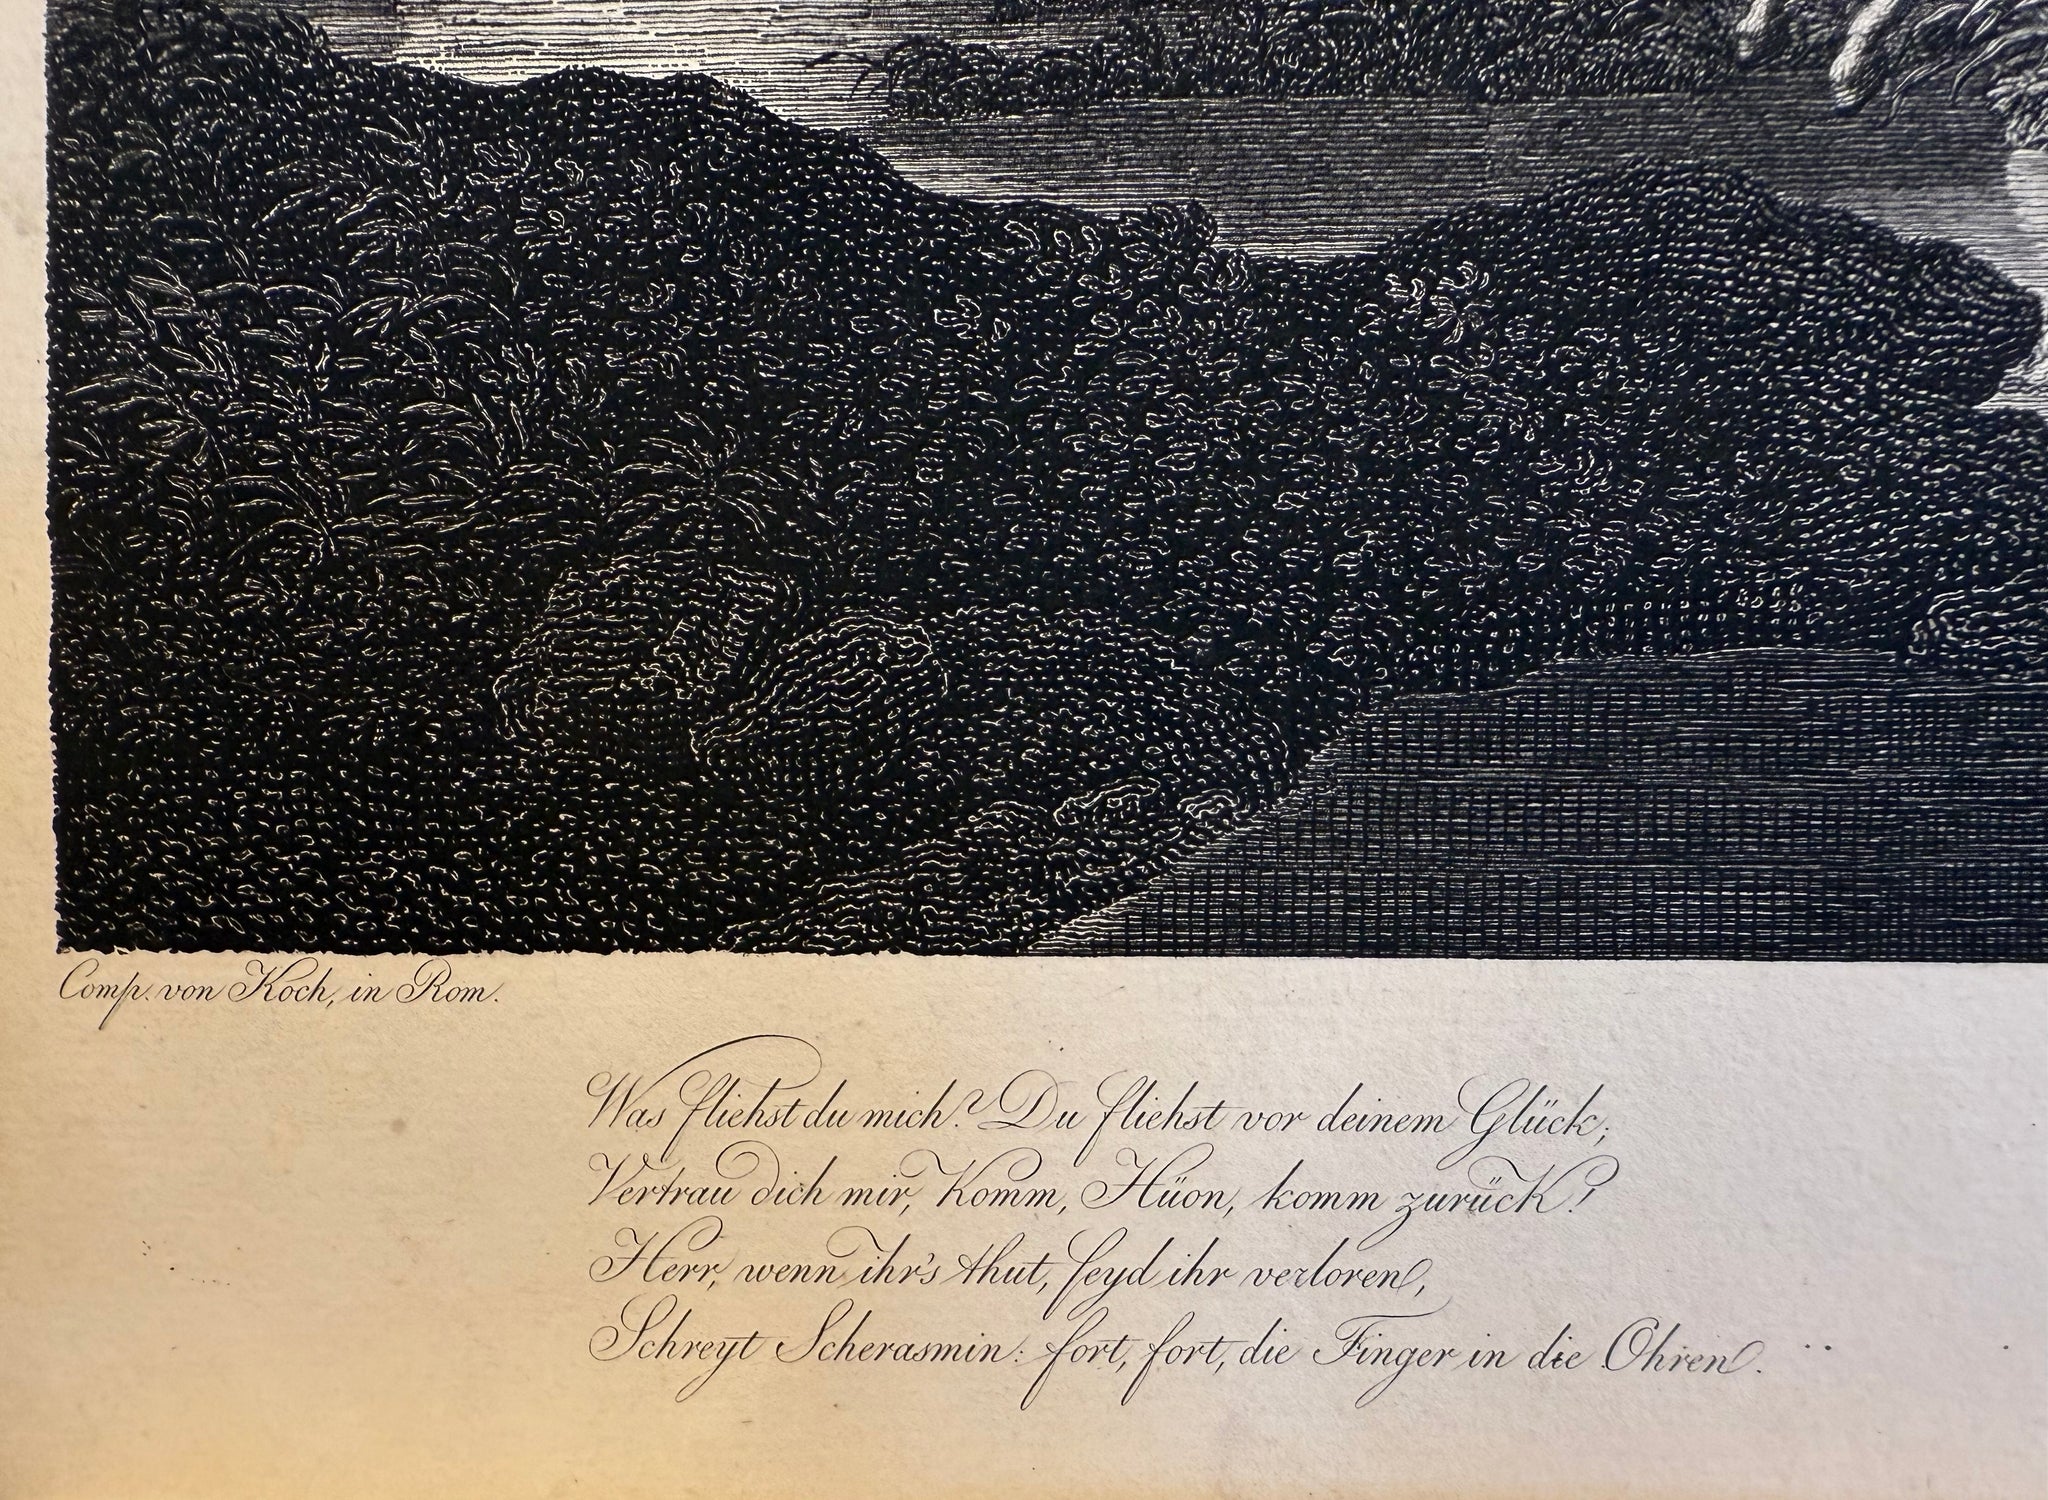 Comp. von Koch, in Rom.
Was fliehst du mich? Du fliehst vor deinem Glück;
Vertrau dich mir, Komm, Hüon, komm zurück!
Herr, wenn ihr's thut, seyd ihr verloren,
Schreyt Scherasmin: fort, fort, die Finger in die Ohren.